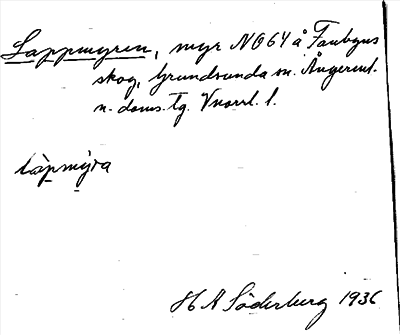 Lappmyren, myr NO64 å Faubyns
skog, Grundsunda sn. Ångerml.
n. doms. tg. Vnorrl. l.
làpmýra
H A Söderberg 1936